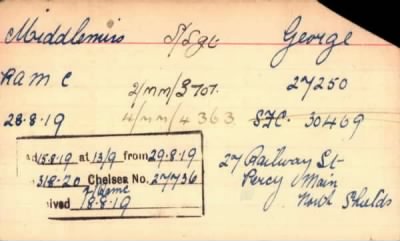 Middlemiss S/Sgt George
RAMC 2/MM/3701. 27250
28-8-19 4/MM/4363 SFC. 30469
ed 15-8-19 at 13/9 from 29-8-19
31-8-20 Chelsea No. 27736
eived 18-8-19
27 Railway St
Percy Main
North Shields